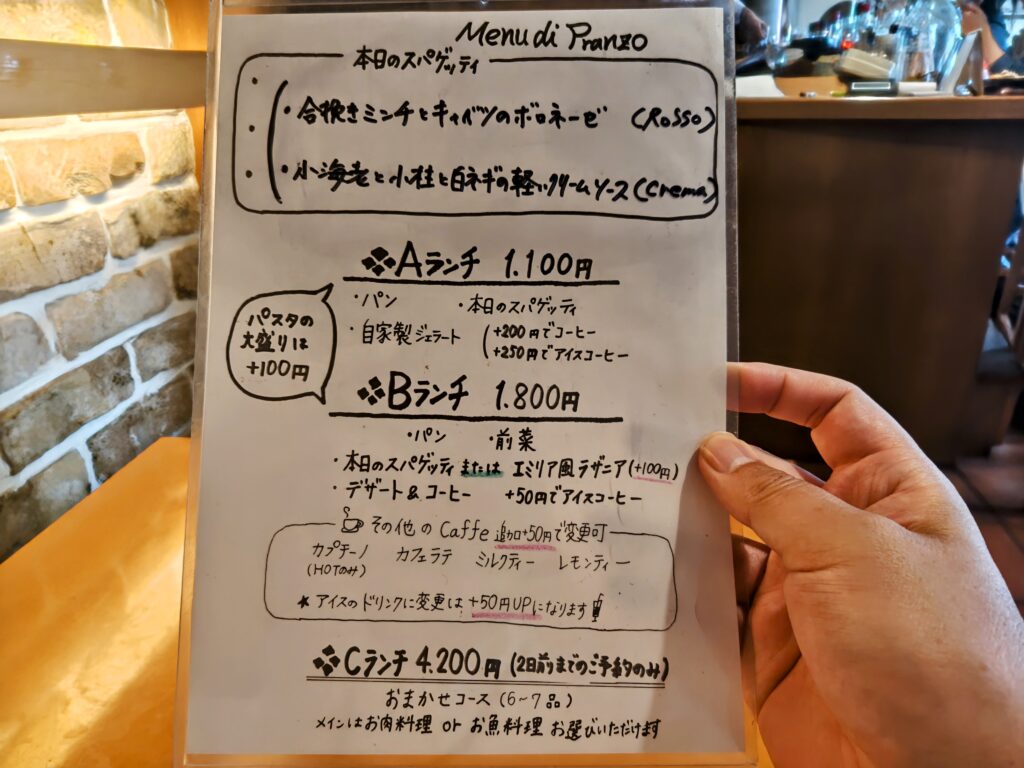 Menu di Pranzo
本日のスパゲッティ
・合挽きミンチとキャベツのボロネーゼ (Rosso)
・小海老と小柱と白ネギの軽いクリームソース (Crema)
❖Aランチ 1.100円
・パン ・本日のスパゲッティ
・自家製ジェラート (+200円でコーヒー
+250円でアイスコーヒー
パスタの
大盛りは
+100円
❖Bランチ 1.800円
・パン ・前菜
・本日のスパゲッティ または エミリア風ラザニア(+100円)
・デザート&コーヒー +50円でアイスコーヒー
その他のCaffe 追加+50円で変更可
カプチーノ カフェラテ ミルクティー レモンティー
(HOTのみ)
★アイスのドリンクに変更は+50円UPになります
❖Cランチ 4.200円 (2日前までのご予約のみ)
おまかせコース (6~7品)
メインはお肉料理 or お魚料理 お選びいただけます